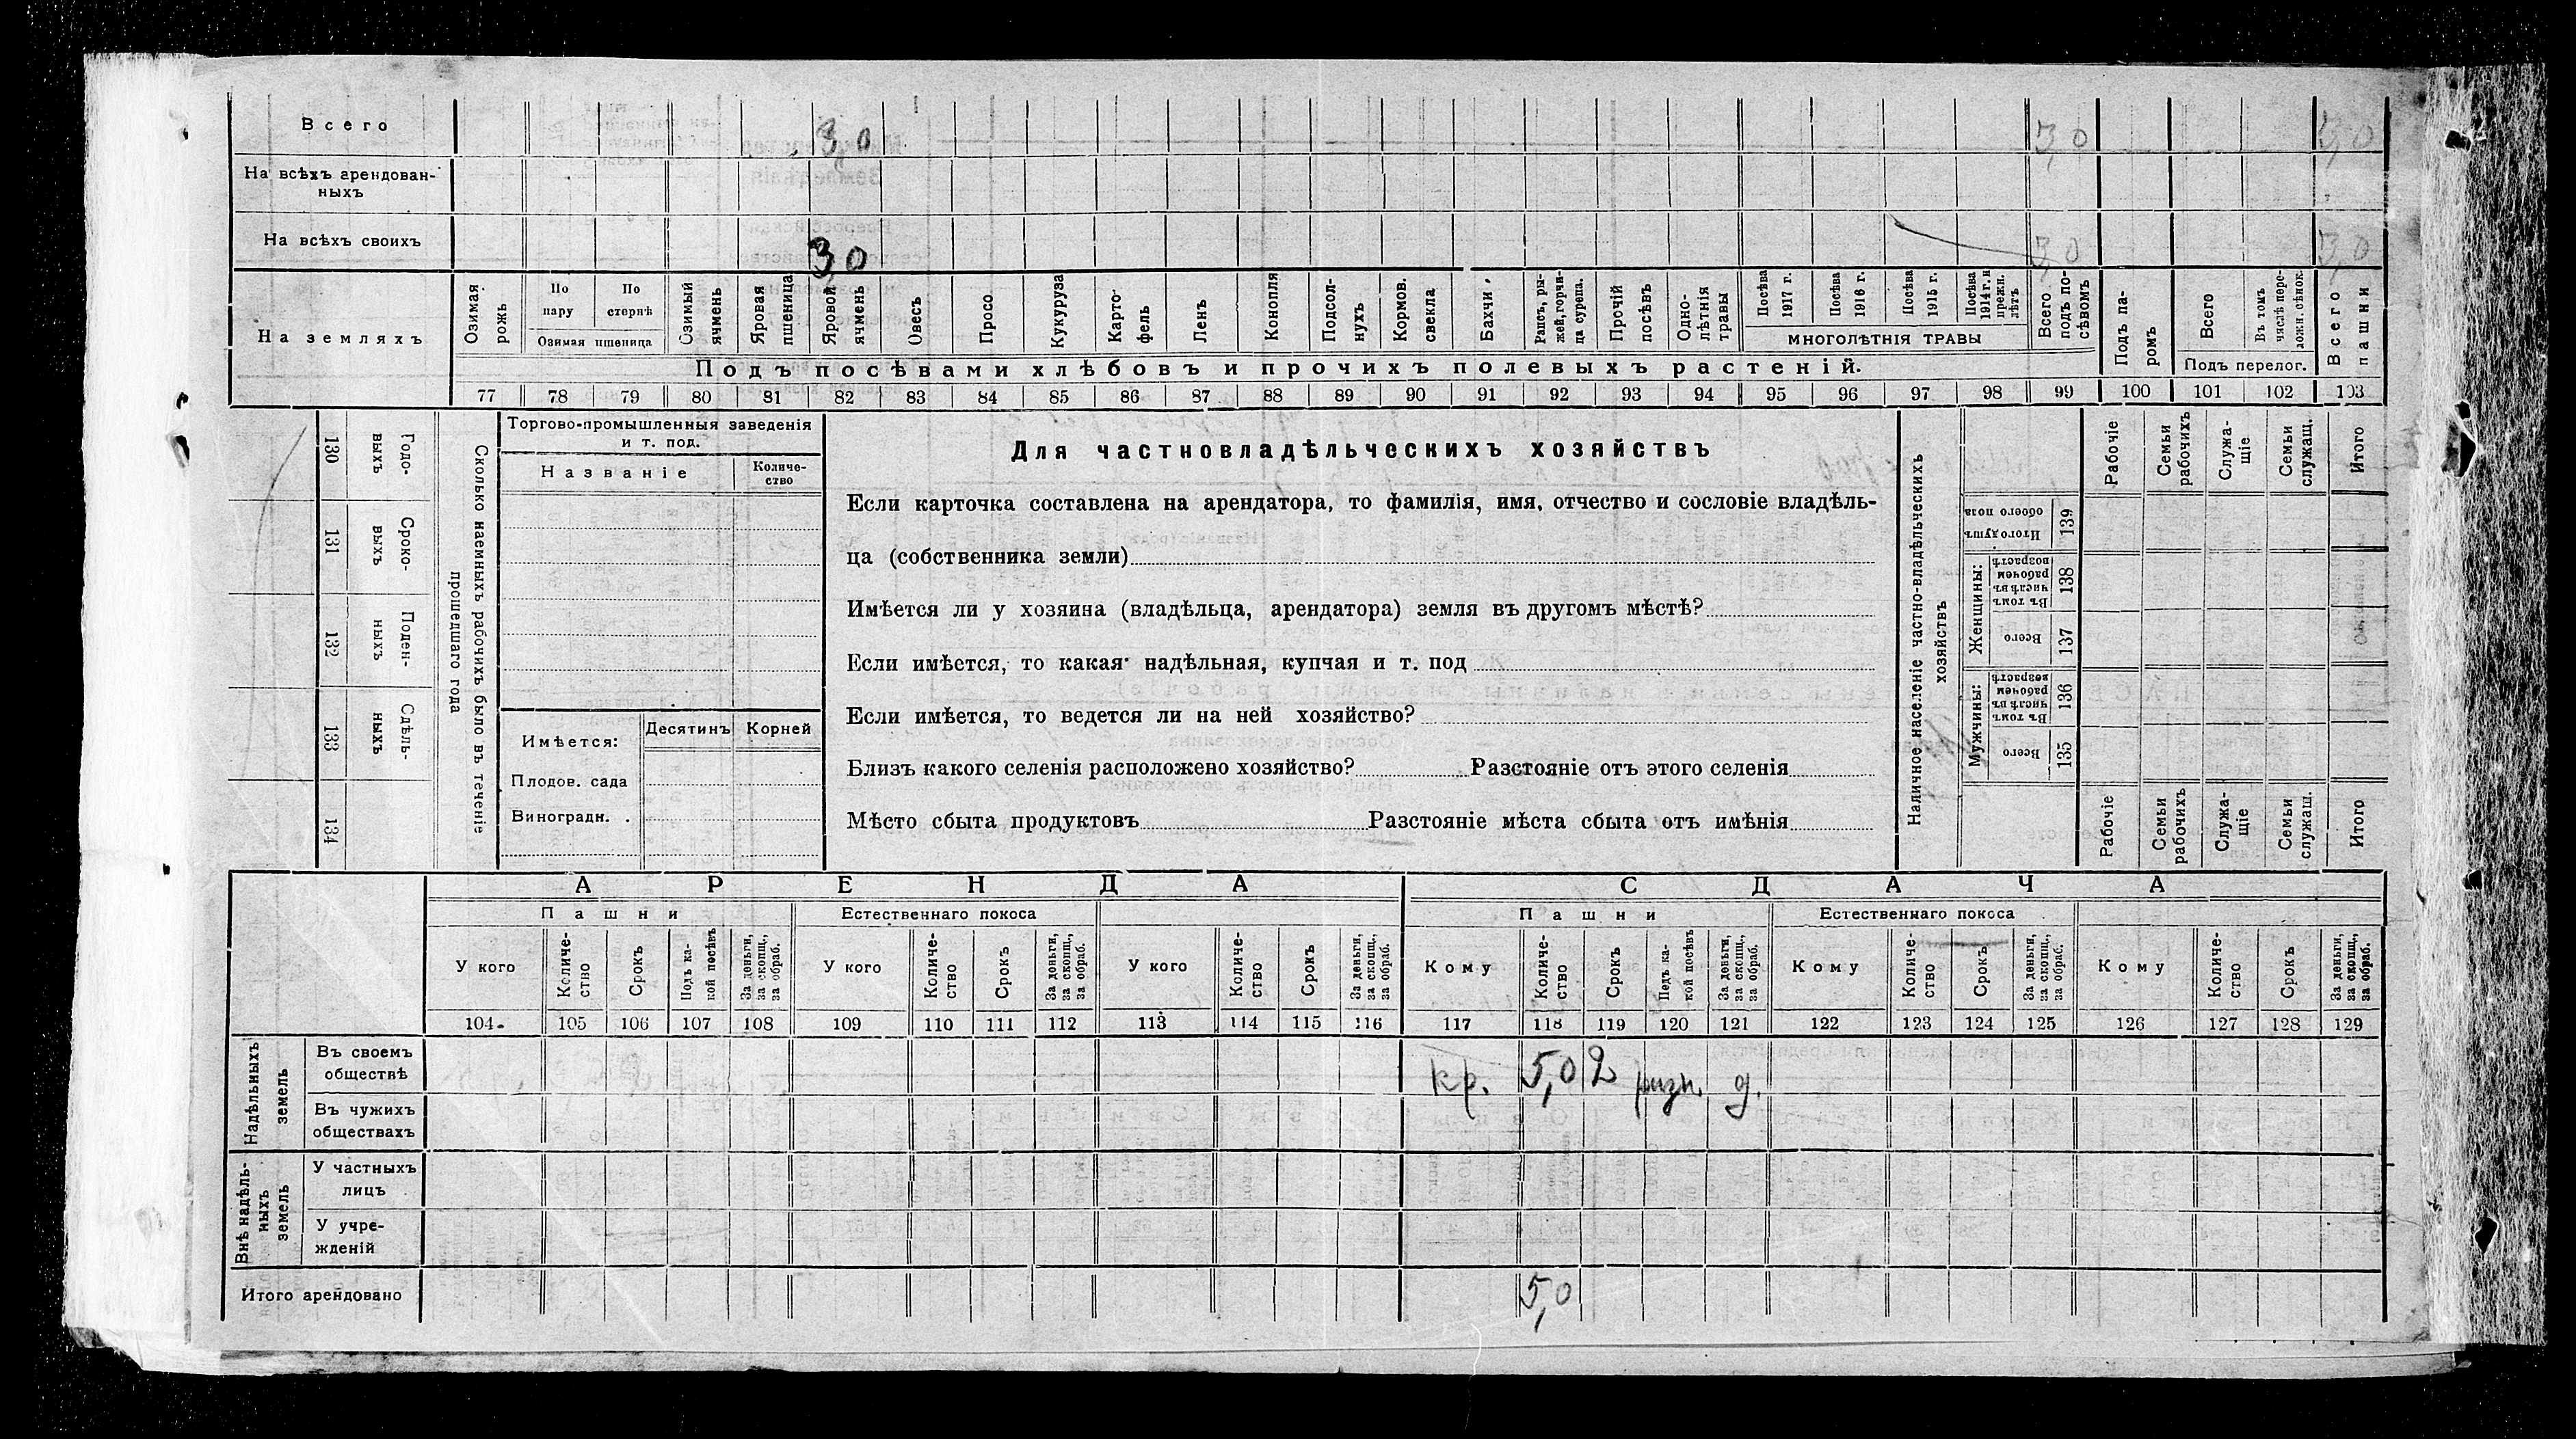 Всего 3,0 3,0 3,0
На всѣхъ арендован-
ныхъ
На всѣхъ своихъ 3,0 3,0 3,0
На земляхъ
Озимая рожь
По пару
По стернѣ
Озимая пшеница
Озимый ячмень
Яровая пшеница
Яровой ячмень
Овесъ
Просо
Кукуруза
Карто-
фель
Ленъ
Конопля
Подсол-
нухъ
Кормов. свекла
Бахчи
Рапсъ, ры-
жей, горчи-
ца сурепа.
Прочій посѣвъ
Одно-
лѣтнія травы
Посѣва 1917 г.
Посѣва 1916 г.
Посѣва 1915 г.
Посѣва 1914 г. и прежн. лѣтъ
МНОГОЛѢТНІЯ ТРАВЫ
Всего подъ по-
сѣвомъ
Подъ па-
ромъ
Всего
Въ томъ числѣ пере-
ложн. сѣнок.
Подъ перелог.
Всего пашни
Подъ посѣвами хлѣбовъ и прочихъ полевыхъ растеній.
77 78 79 80 81 82 83 84 85 86 87 88 89 90 91 92 93 94 95 96 97 98 99 100 101 102 103
130 Годо-
выхъ
131 Сроко-
выхъ
132 Поден-
ныхъ
133 Сдѣль-
ныхъ
134
Сколько наемныхъ рабочихъ было въ теченіе
прошедшаго года
Торгово-промышленныя заведенія
и т. под.
Названіе
Количе-
ство
Имѣется:
Десятинъ Корней
Плодов. сада
Виноградн. .
Для частновладѣльческихъ хозяйствъ
Если карточка составлена на арендатора, то фамилія, имя, отчество и сословіе владѣль-
ца (собственника земли)
Имѣется ли у хозяина (владѣльца, арендатора) земля въ другомъ мѣстѣ?
Если имѣется, то какая надѣльная, купчая и т. под
Если имѣется, то ведется ли на ней хозяйство?
Близъ какого селенія расположено хозяйство? Разстояніе отъ этого селенія
Мѣсто сбыта продуктовъ Разстояніе мѣста сбыта отъ имѣнія
Наличное населеніе частно-владѣльческихъ
хозяйствъ
Рабочіе
Семьи рабочихъ
Служа-
щіе
Семьи служащ.
Итого
Итого душъ обоего пола 139
Женщины:
Въ томъ числѣ въ рабочемъ возрастѣ 138
Всего 137
Мужчины:
Въ томъ числѣ въ рабочемъ возрастѣ 136
Всего 135
Рабочіе
Семьи рабочихъ
Служа-
щіе
Семьи служащ.
Итого
АРЕНДА СДАЧА
Пашни Естественнаго покоса Пашни Естественнаго покоса
У кого
Количе-
ство
Срокъ
Подъ ка-
кой посѣвъ
За деньги, за скопщ., за обраб.
У кого
Количе-
ство
Срокъ
За деньги, за скопщ., за обраб.
У кого
Количе-
ство
Срокъ
За деньги, за скопщ., за обраб.
Кому
Количе-
ство
Срокъ
Подъ ка-
кой посѣвъ
За деньги, за скопщ., за обраб.
Кому
Количе-
ство
Срокъ
За деньги, за скопщ., за обраб.
Кому
Количе-
ство
Срокъ
За деньги, за скопщ., за обраб.
104 105 106 107 108 109 110 111 112 113 114 115 116 117 118 119 120 121 122 123 124 125 126 127 128 129
Надѣльныхъ
земель
Въ своемъ
обществѣ
кр. 5,0 2 разн. д.
Въ чужихъ
обществахъ
Внѣ надѣль-
ныхъ
земель
У частныхъ
лицъ
У учре-
жденій
Итого арендовано 5,0